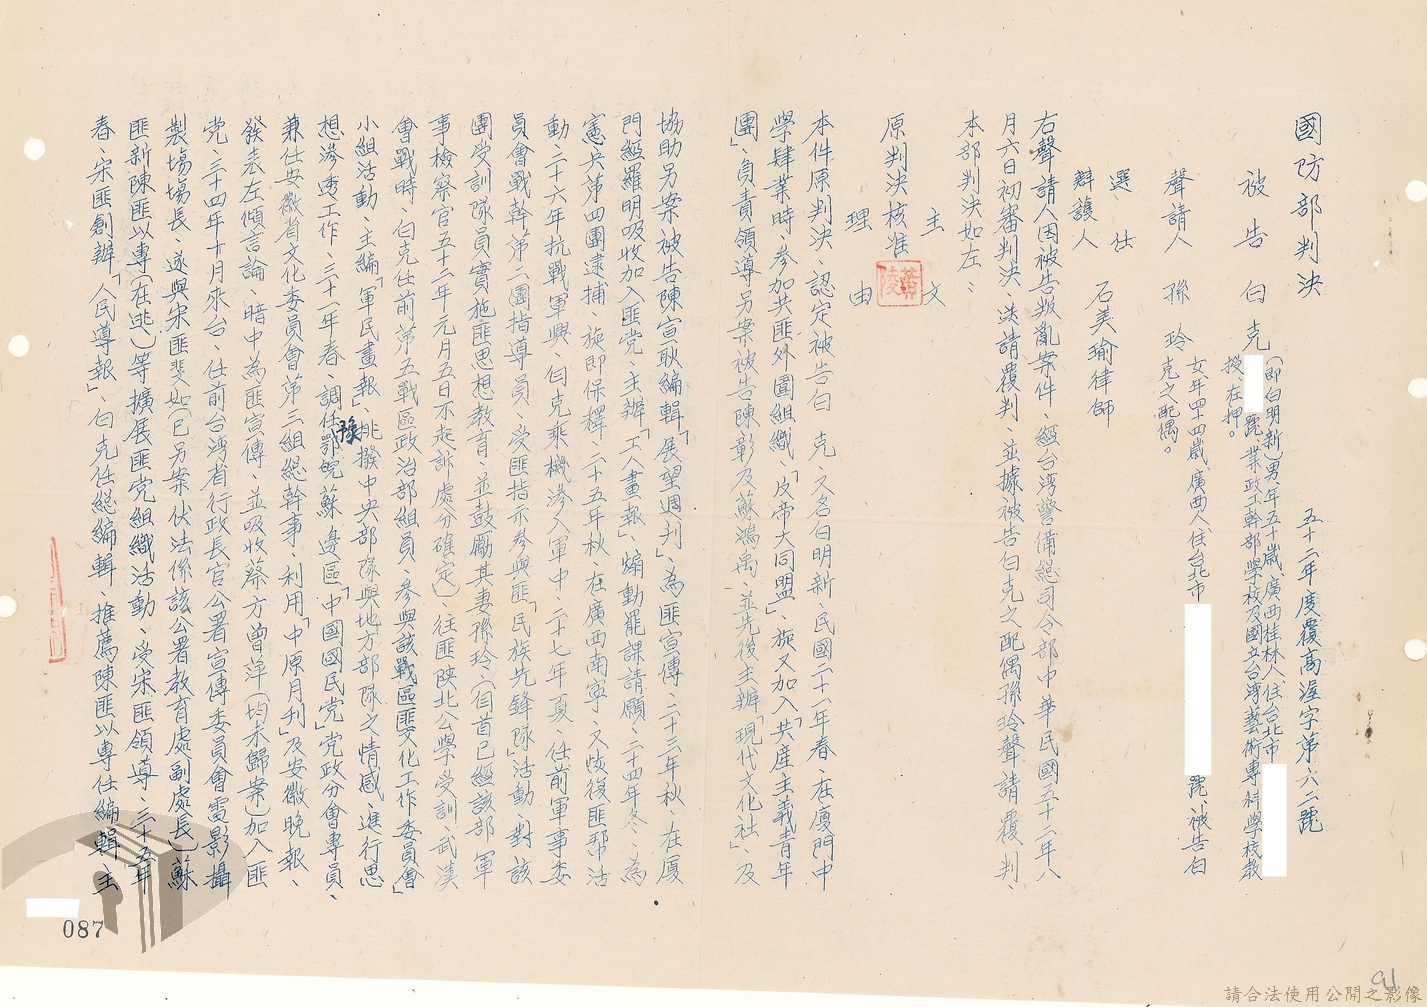 國防部判決
五十二年度覆高浞字第六二號
被告 白克(即白明新)男、年五十歲、廣西桂林人、住台北市
號、業政工幹部學校及國立台灣藝術專科學校教
授、在押。
聲請人 孫玲 女年四十四歲、廣西人、住台北市 號、被告白
克之配偶。
選任
辯護人 石美瑜律師
右聲請人因被告叛亂案件、經台湾警備總司令部中華民國五十二年八
月六日初審判決、送請覆判、並據被告白克之配偶孫玲聲請覆判、
本部判決如左：
主文
原判決核准
理由
本件原判決、認定被告白 克、又名白明新、民國二十一年春、在廈門中
學肄業時、參加共匪外圍組織、「反帝大同盟」、旋又加入「共產主義青年
團」、負責領導另案被告陳彰及蘇鴻禹、並先後主辦「現代文化社」、及
協助另案被告陳宣耿編輯「展望週刊」、為匪宣傳、二十三年秋、在廈
門經羅明吸收加入匪党、主辦「工人畫報」、煽動罷課請願、二十四年冬、為
憲兵第四團逮捕、旋即保釋、二十五年秋、在廣西南寧、又恢復匪帮活
動、二十六年抗戰軍興、白克乘機滲入軍中、二十七年夏、任前軍事委
員會戰幹第二團指導員、受匪指示參與匪「民族先鋒隊」活動、對該
團受訓隊員實施匪思想教育、並鼓勵其妻孫玲、(自首已經該部軍
事檢察官五十二年元月五日不起訴處分確定)、往匪陝北公學受訓、武漢
會戰時、白克任前第五戰區政治部組員、參與該戰區匪文化工作委員會」
小組活動、主編「軍民畫報」、挑撥中央部隊與地方部隊之情感、進行思
想滲透工作、三十一年春、調任鄂豫皖蘇邊區「中國國民党」党政分會專員、
兼任安徽省文化委員會第三組總幹事、利用「中原月刊」及安徽晚報、
發表左傾言論、暗中為匪宣傳、並吸收蔡方曾萍(均未歸案)加入匪
党、三十四年十月來台、任前台湾省行政長官公署宣傳委員會電影攝
製場場長、遂與宋匪斐如(已另案伏法係該公署教育處副處長)蘇
匪新陳匪以專(在逃)等擴展匪党組織活動、受宋匪領導、三十五年
春、宋匪創辦「人民導報」、白克任總編輯、推薦陳匪以專任編輯、主
087
91
請合法使用公開之影像